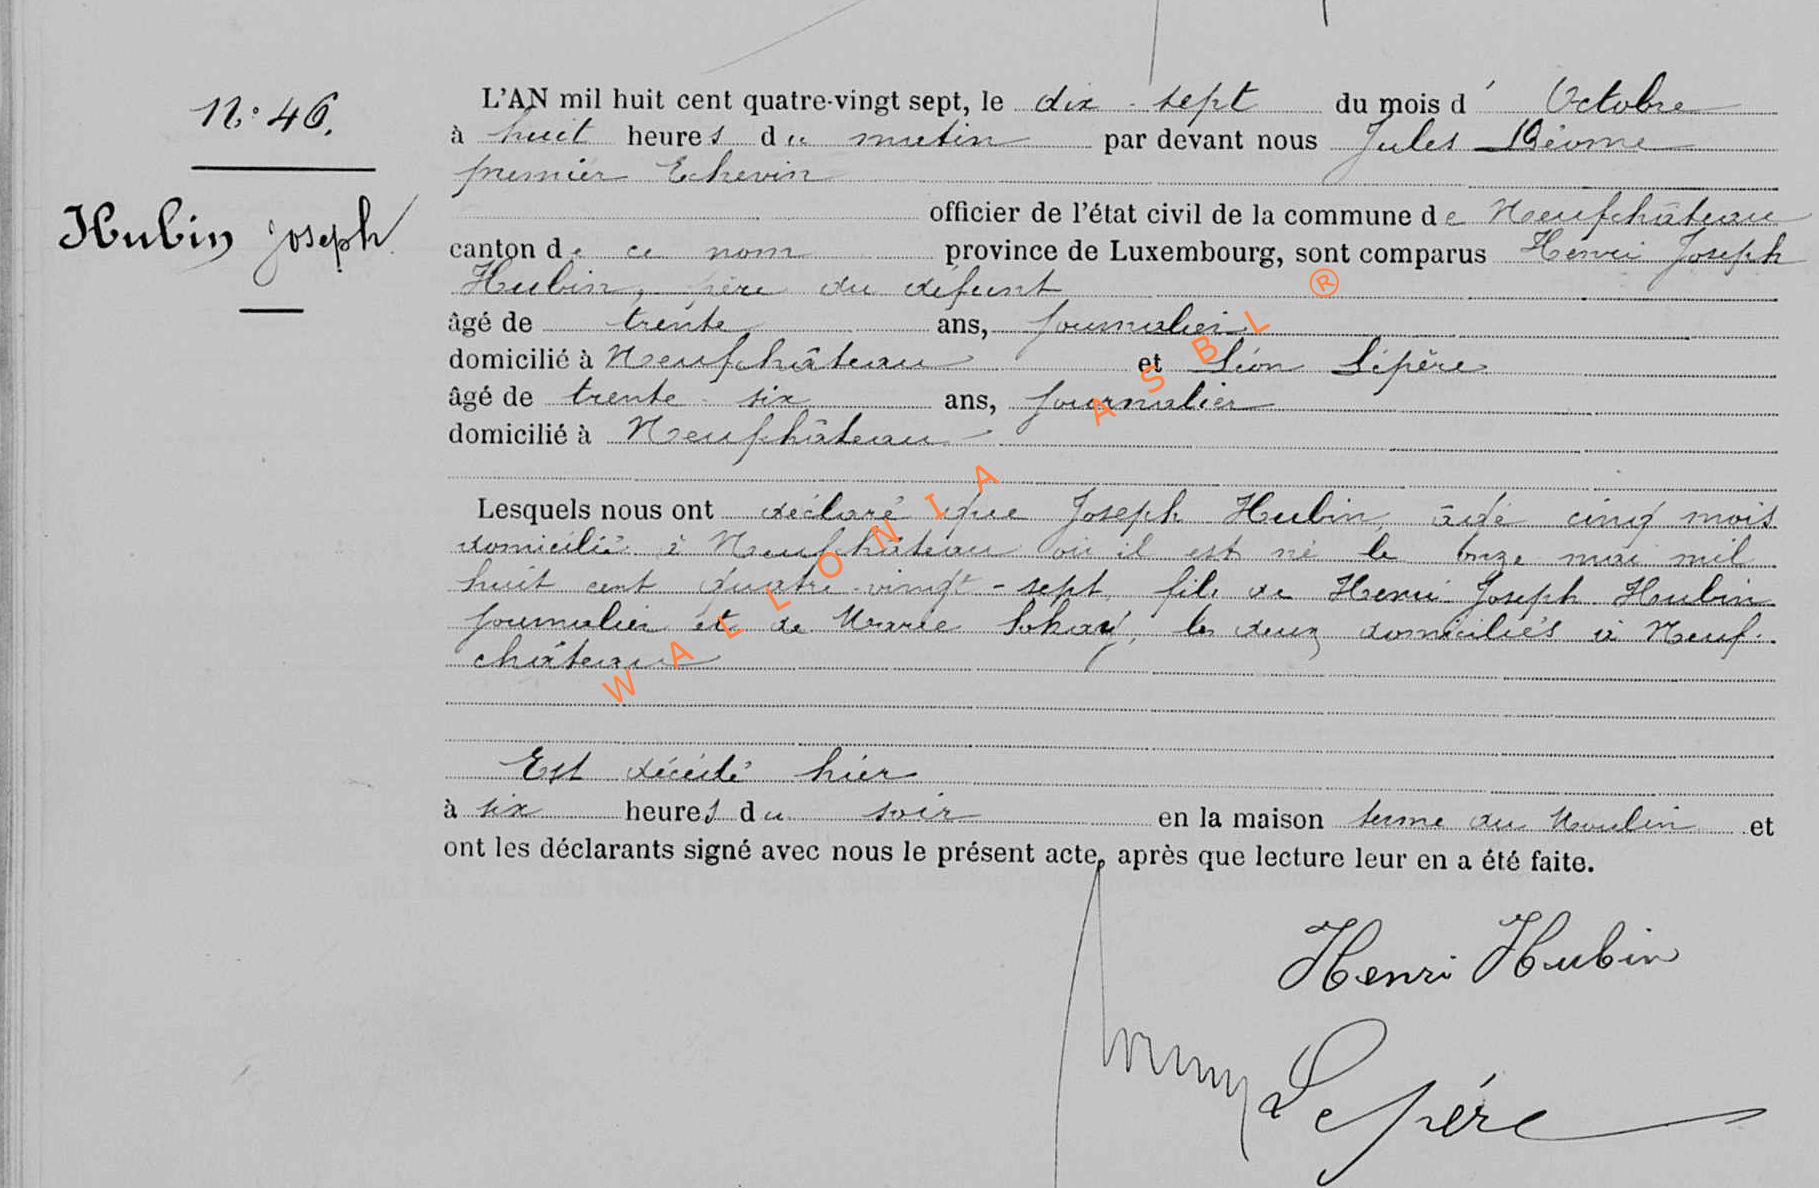 N° 46.
Hubin Joseph
L'AN mil huit cent quatre-vingt sept, le dix-sept du mois d' Octobre
à huit heures du matin par devant nous Jules
premier Echevin
officier de l'état civil de la commune de Neufchâteau
canton de ce nom province de Luxembourg, sont comparus Henri Joseph
Hubin, père du défunt
âgé de trente ans, journalier
domicilié à Neufchâteau et Léon Lepère
âgé de trente-six ans, journalier
domicilié à Neufchâteau
Lesquels nous ont déclaré que Joseph Hubin, âgé cinq mois
domicilié à Neufchâteau où il est né le onze mai mil
huit cent quatre-vingt-sept, fils de Henri Joseph Hubin
journalier et de Marie Sokay, les deux domiciliés à Neuf-
château
Est décédé hier
à six heures du soir en la maison sise au Moulin et
ont les déclarants signé avec nous le présent acte, après que lecture leur en a été faite.
Henri Hubin
Lepère
WALLONIA ASBL ®